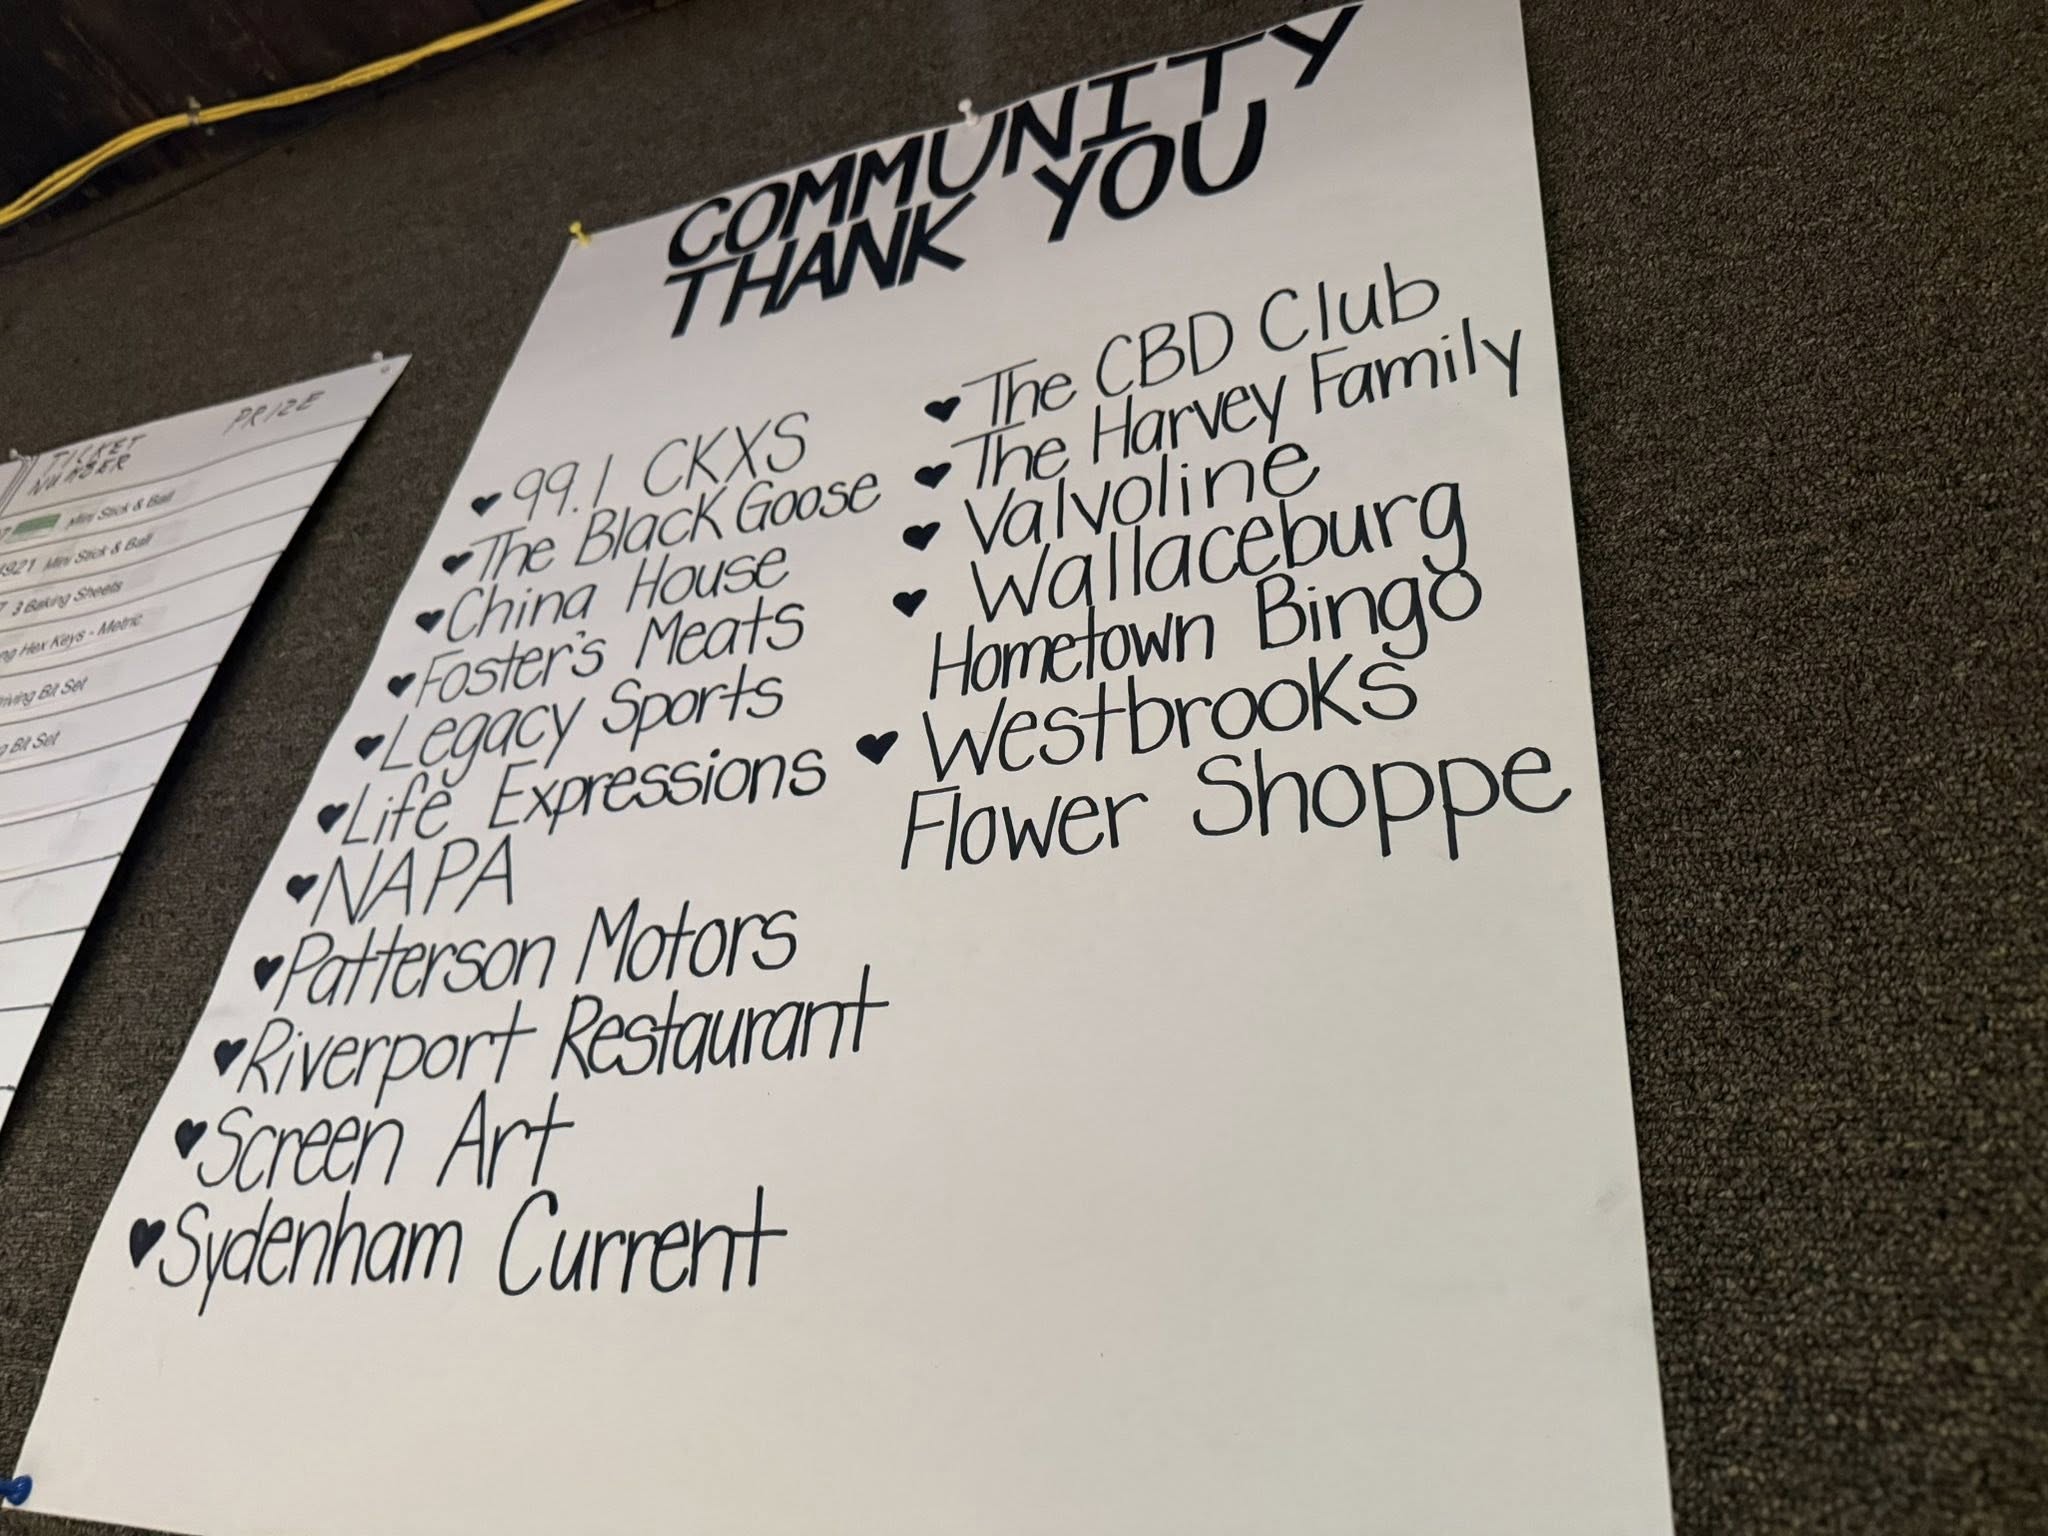 COMMUNITY
THANK YOU
99.1 CKXS
The Black Goose
China House
Foster's Meats
Legacy Sports
Life Expressions
NAPA
Patterson Motors
Riverport Restaurant
Screen Art
Sydenham Current
The CBD Club
The Harvey Family
Valvoline
Wallaceburg
Hometown Bingo
Westbrooks
Flower Shoppe
TICKET PRIZE
NUMBER
Mini Stick & Ball
Mini Stick & Ball
3 Baking Sheets
Hex Keys - Metric
Bit Set
Bit Set